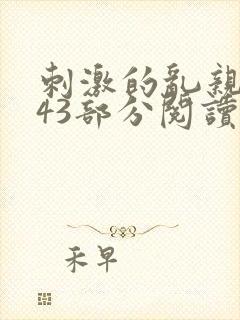 刺激的亂親
43部分閱讀
禾早